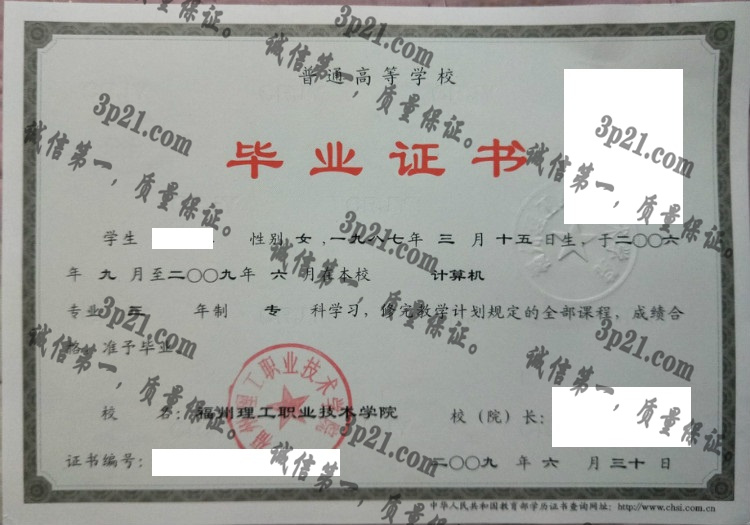 普通高等学校
毕业证书
学生 性别 女 ,一九八七年 三 月 十五 日生, 于二〇〇六
年 九 月至二〇〇九年 六 月在本校 计算机
专业 三 年制 专 科学习, 修完教学计划规定的全部课程, 成绩合
格, 准予毕业
校 名: 福州理工职业技术学院 校 (院) 长:
证书编号:
二〇〇九 年 六 月 三十 日
中华人民共和国教育部学历证书查询网址: http://www.chsi.com.cn
福州理工职业技术学院
3p21.com
诚信第一, 质量保证。
3p21.com
诚信第一, 质量保证。
3p21.com
诚信第一, 质量保证。
3p21.com
诚信第一, 质量保证。
3p21.com
诚信第一, 质量保证。
3p21.com
诚信第一, 质量保证。
3p21.com
诚信第一, 质量保证。
3p21.com
诚信第一, 质量保证。